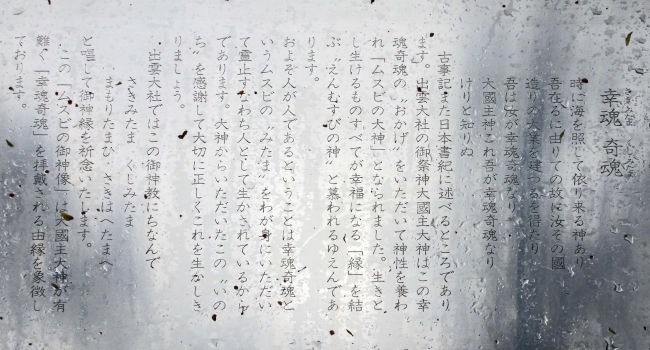 さきみたま くしみたま
幸魂 奇魂
時に海を照して依り来る神あり
吾在るに由りての故に汝その國
造りの大業を建つるを得たり
吾は汝が幸魂奇魂なり
大國主神これ吾が幸魂奇魂なり
けりと知りぬ
古事記また日本書紀に述べるところであり
ます。出雲大社の御祭神大國主大神はこの幸
魂奇魂の〝おかげ〟をいただいて神性を養わ
れ「ムスビの大神」となられました。生きと
し生けるものすべてが幸福になる「縁」を結
ぶ〝えんむすびの神〟と慕われるゆえんであ
ります。
およそ人が人であるということは幸魂奇魂と
いうムスビの〝みたま〟をわが身にいただい
て霊止すなわち人として生かされているから
であります。大神からいただいたこの〝いの
ち〟を感謝して大切に正しくこれを生なしき
りましょう。
出雲大社ではこの御神教にちなんで
さきみたま くしみたま
まもりたまひ さきはへたまへ
と唱して御神縁を祈念いたします。
この「ムスビの御神像」は大國主大神が有
難く「幸魂奇魂」を拝戴される由縁を象徴し
ております。